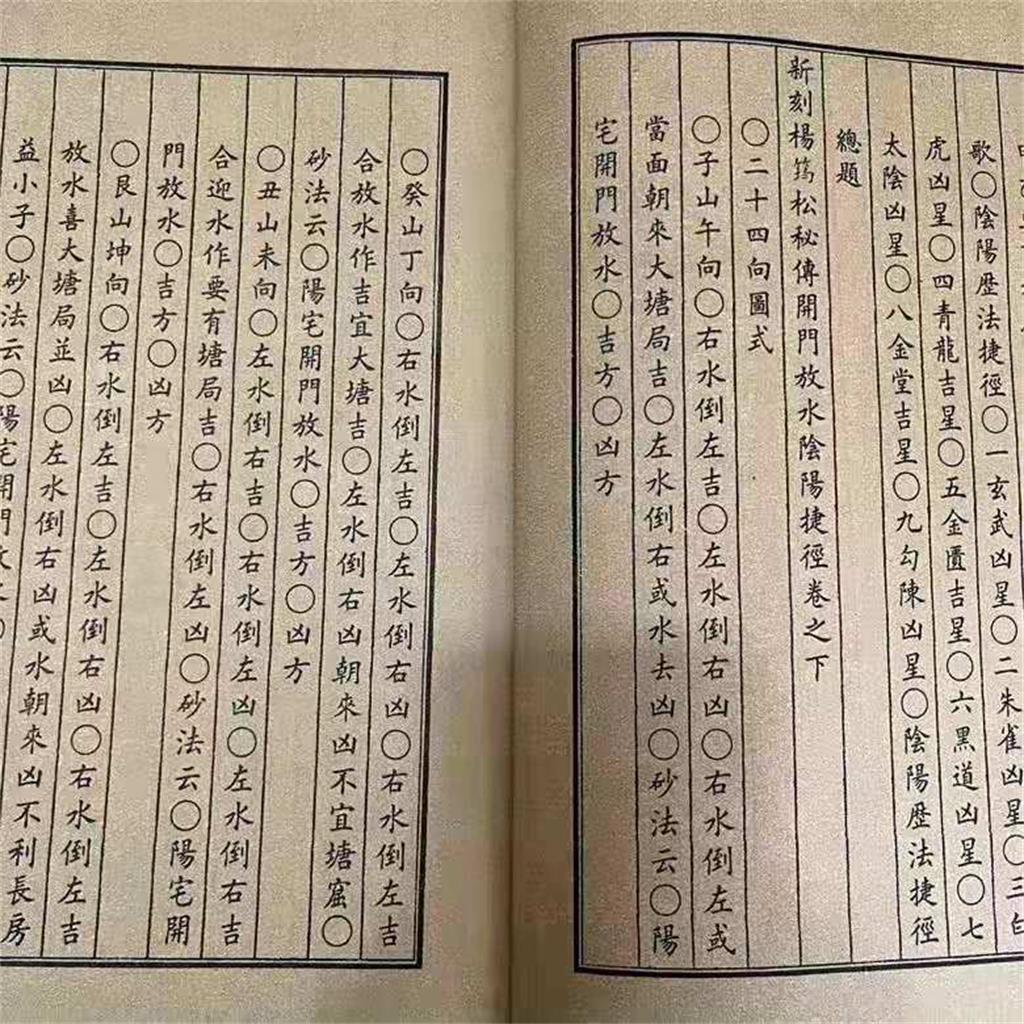 歌〇陰陽歷法捷徑〇一玄武凶星〇二朱雀凶星〇三白
虎凶星〇四青龍吉星〇五金匱吉星〇六黑道凶星〇七
太陰凶星〇八金堂吉星〇九勾陳凶星〇陰陽歷法捷徑
總題
新刻楊筠松秘傳開門放水陰陽捷徑卷之下
〇二十四向圖式
〇子山午向〇右水倒左吉〇左水倒右凶〇右水倒左或
當面朝來大塘局吉〇左水倒右或水去凶〇砂法云〇陽
宅開門放水〇吉方〇凶方
〇癸山丁向〇右水倒左吉〇左水倒右凶〇右水倒左吉
合放水作吉宜大塘吉〇左水倒右凶朝來凶不宜塘窟〇
砂法云〇陽宅開門放水〇吉方〇凶方
〇丑山未向〇左水倒右吉〇右水倒左凶〇左水倒右吉
合迎水作要有塘局吉〇右水倒左凶〇砂法云〇陽宅開
門放水〇吉方〇凶方
〇艮山坤向〇右水倒左吉〇左水倒右凶〇右水倒左吉
放水喜大塘局並凶〇左水倒右凶或水朝來凶不利長房
益小子〇砂法云〇陽宅開門放水